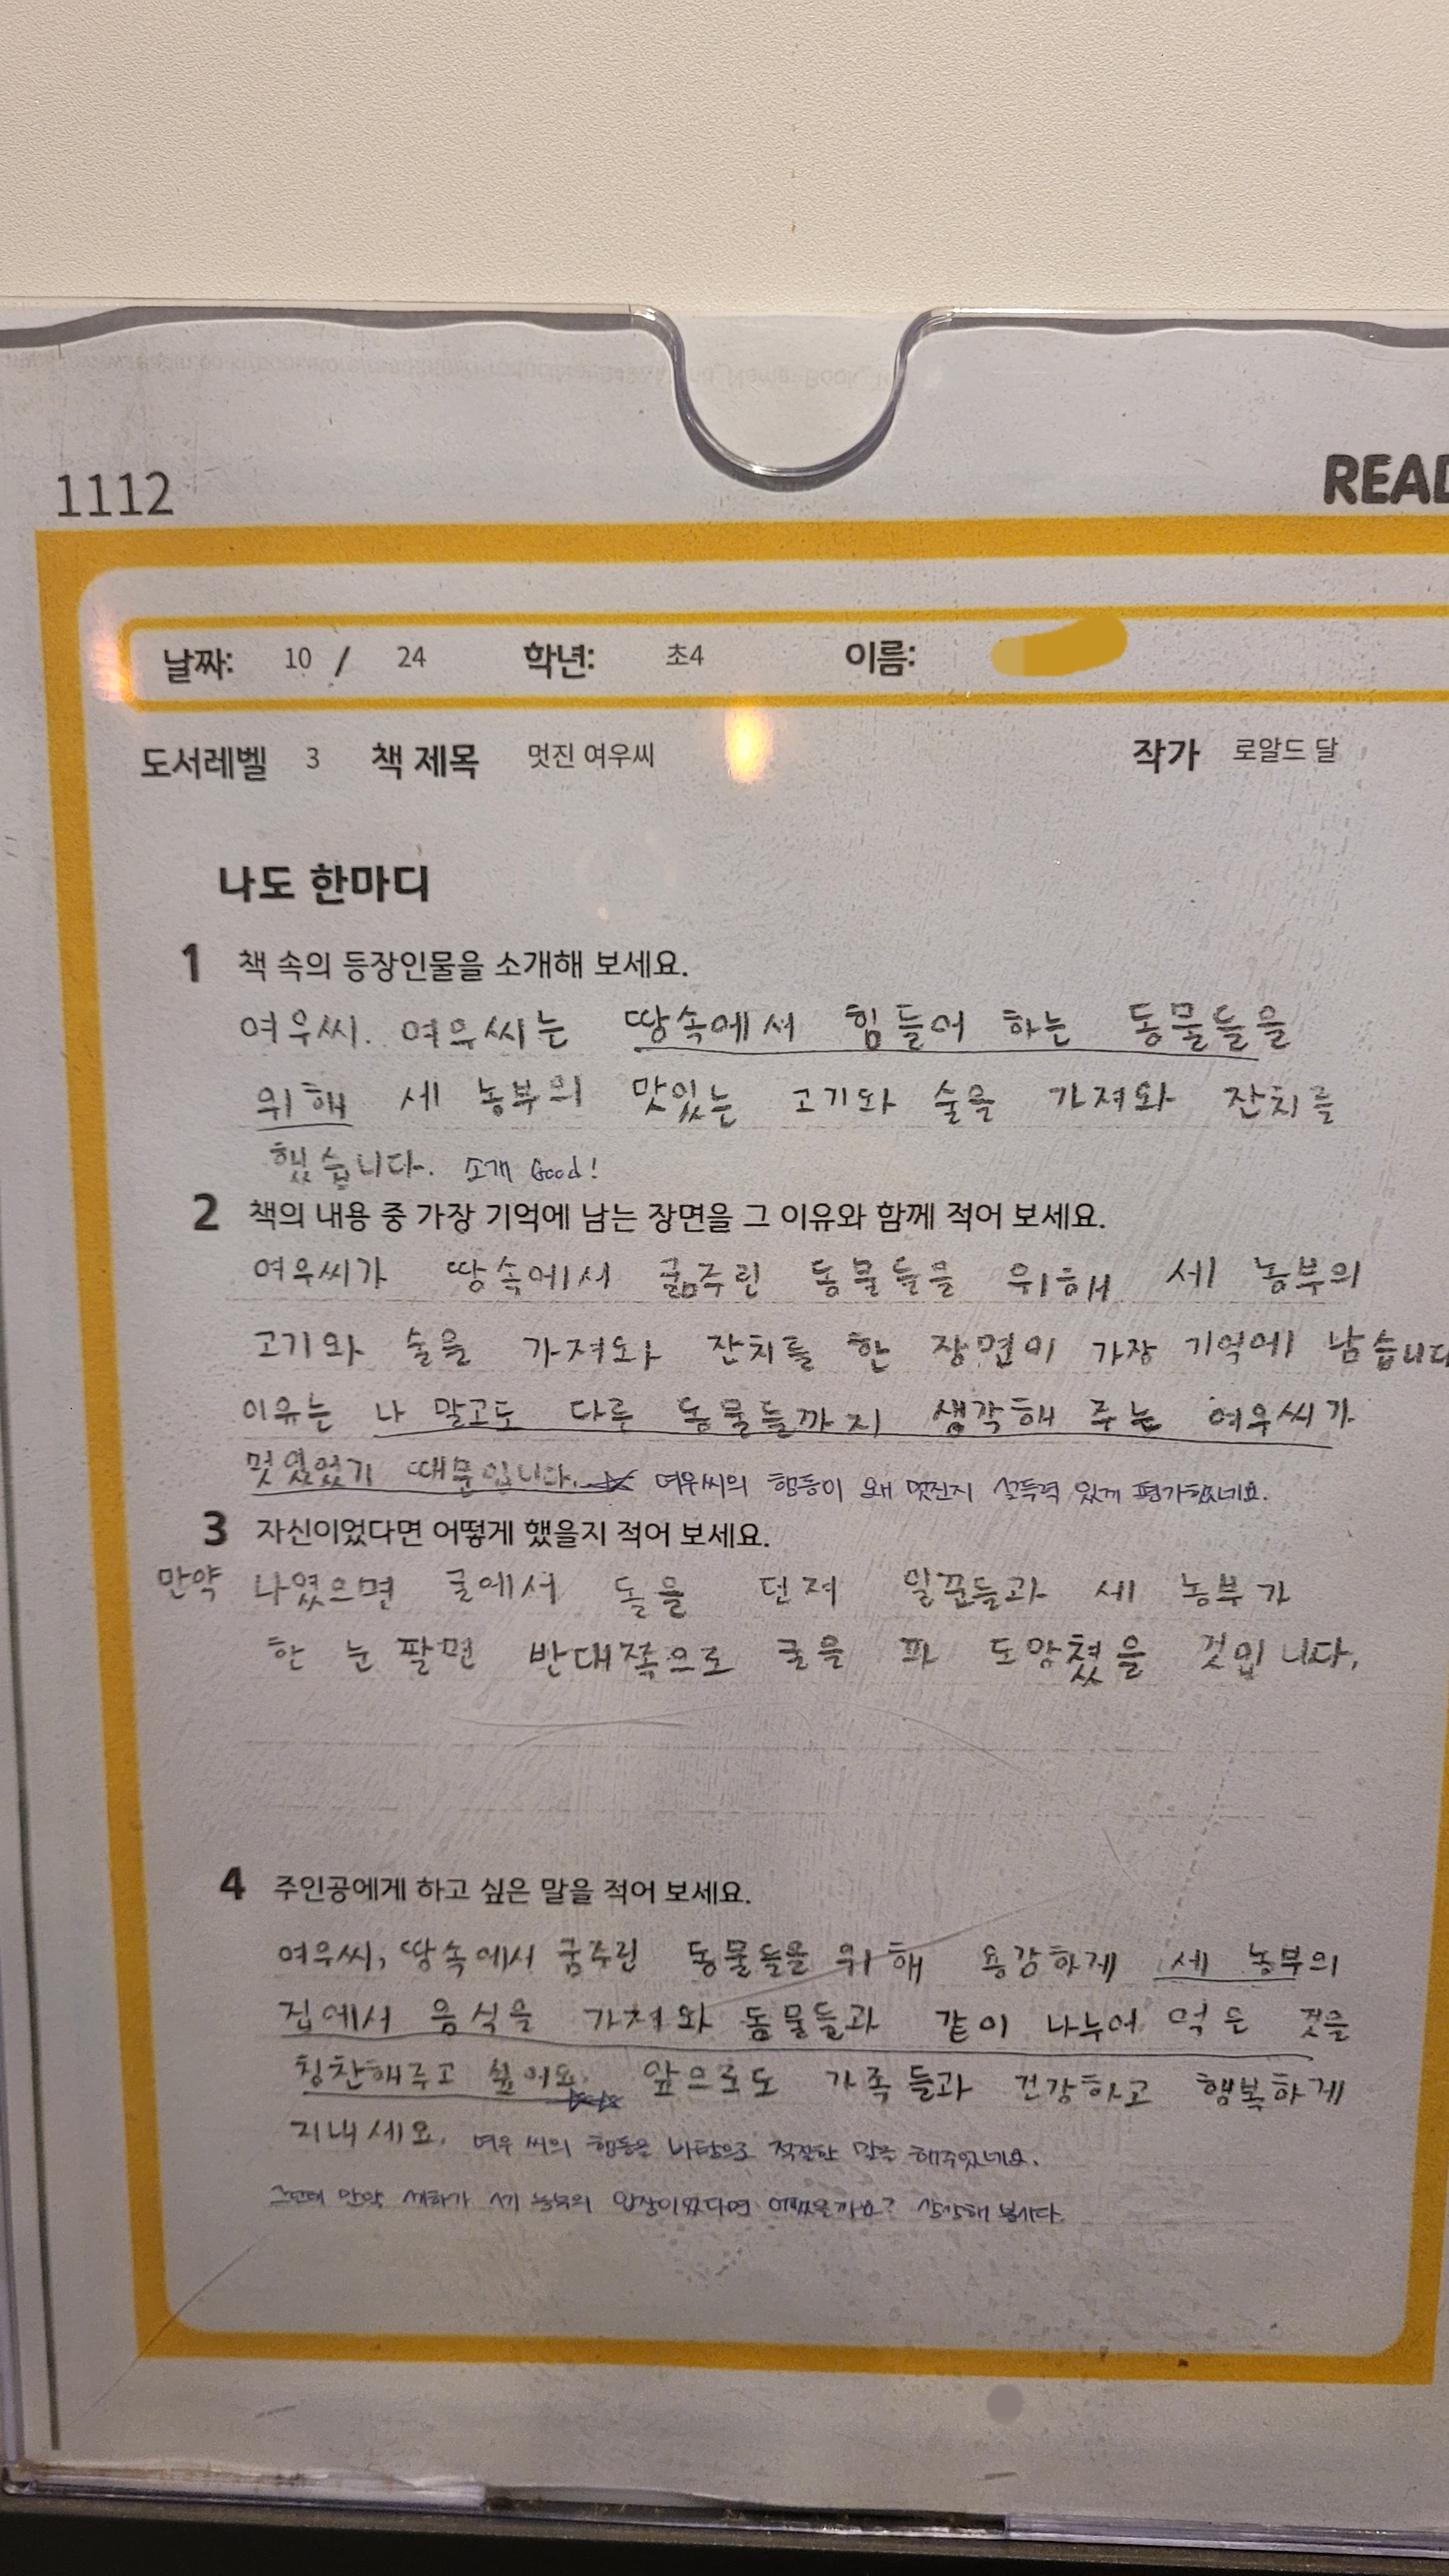 1112
READ
날짜: 10 / 24 학년: 초4 이름:
도서레벨 3 책 제목 멋진 여우씨 작가 로알드 달
나도 한마디
1 책 속의 등장인물을 소개해 보세요.
여우씨. 여우씨는 땅속에서 힘들어 하는 동물들을
위해 세 농부의 맛있는 고기와 술을 가져와 잔치를
했습니다. 소개 Good!
2 책의 내용 중 가장 기억에 남는 장면을 그 이유와 함께 적어 보세요.
여우씨가 땅속에서 굶주린 동물들을 위해 세 농부의
고기와 술을 가져와 잔치를 한 장면이 가장 기억에 남습니다
이유는 나 말고도 다른 동물들까지 생각해 주는 여우씨가
멋있었기 때문입니다. 여우씨의 행동이 왜 멋진지 설득력 있게 평가했네요.
3 자신이었다면 어떻게 했을지 적어 보세요.
만약 나였으면 굴에서 돌을 던져 일꾼들과 세 농부가
한 눈 팔면 반대쪽으로 굴을 파 도망쳤을 것입니다.
4 주인공에게 하고 싶은 말을 적어 보세요.
여우씨, 땅속에서 굼주린 동물들을 위해 용감하게 세 농부의
집에서 음식을 가져와 동물들과 같이 나누어 먹은 것을
칭찬해주고 싶어요. 앞으로도 가족들과 건강하고 행복하게
지내세요. 여우씨의 행동을 바탕으로 적절한 말을 해주었네요.
그런데 만약 세 농부의 입장이었다면 어땠을까요? 생각해 봅시다.